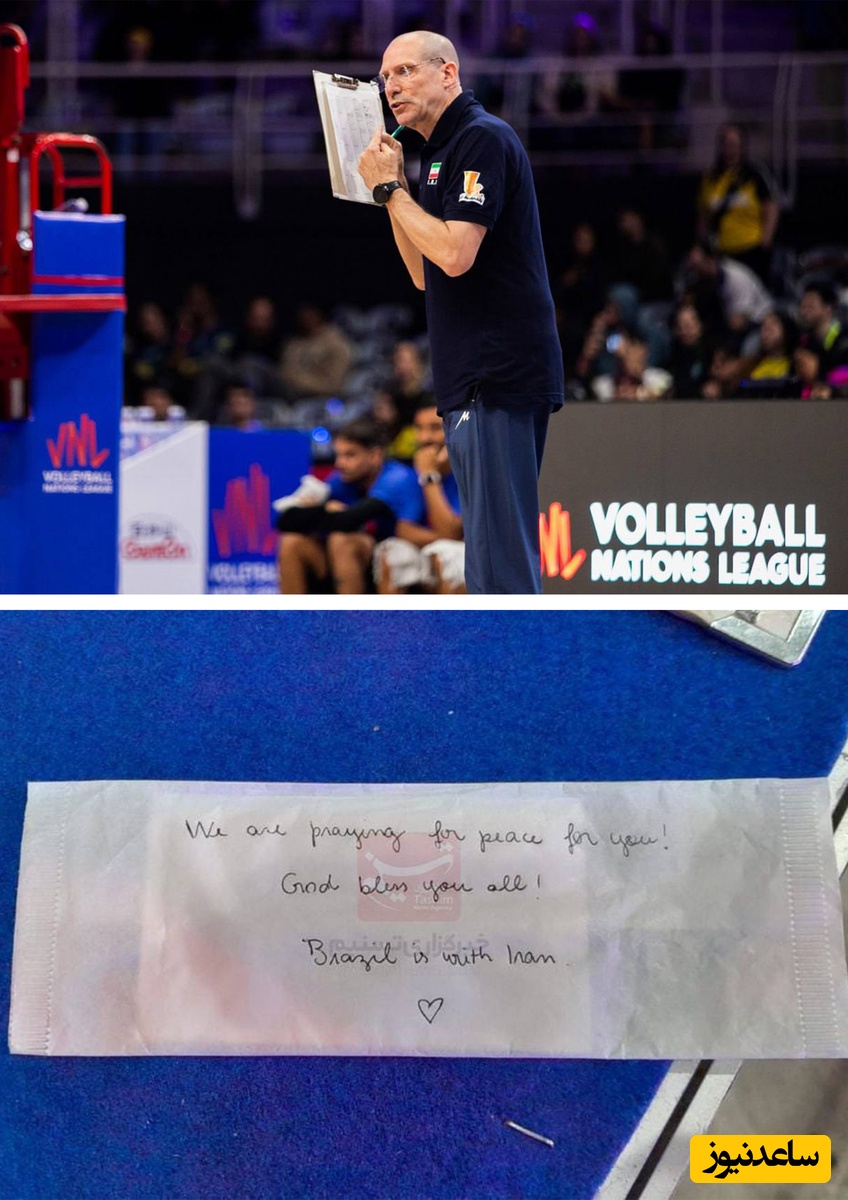 VNL
VOLLEYBALL
NATIONS LEAGUE
VOLLEYBALL
NATIONS LEAGUE
We are praying for peace for you!
God bless you all!
Brazil is with Iran
تسنیم
Tasnim
خبرگزاری تسنیم
ساعدنیوز